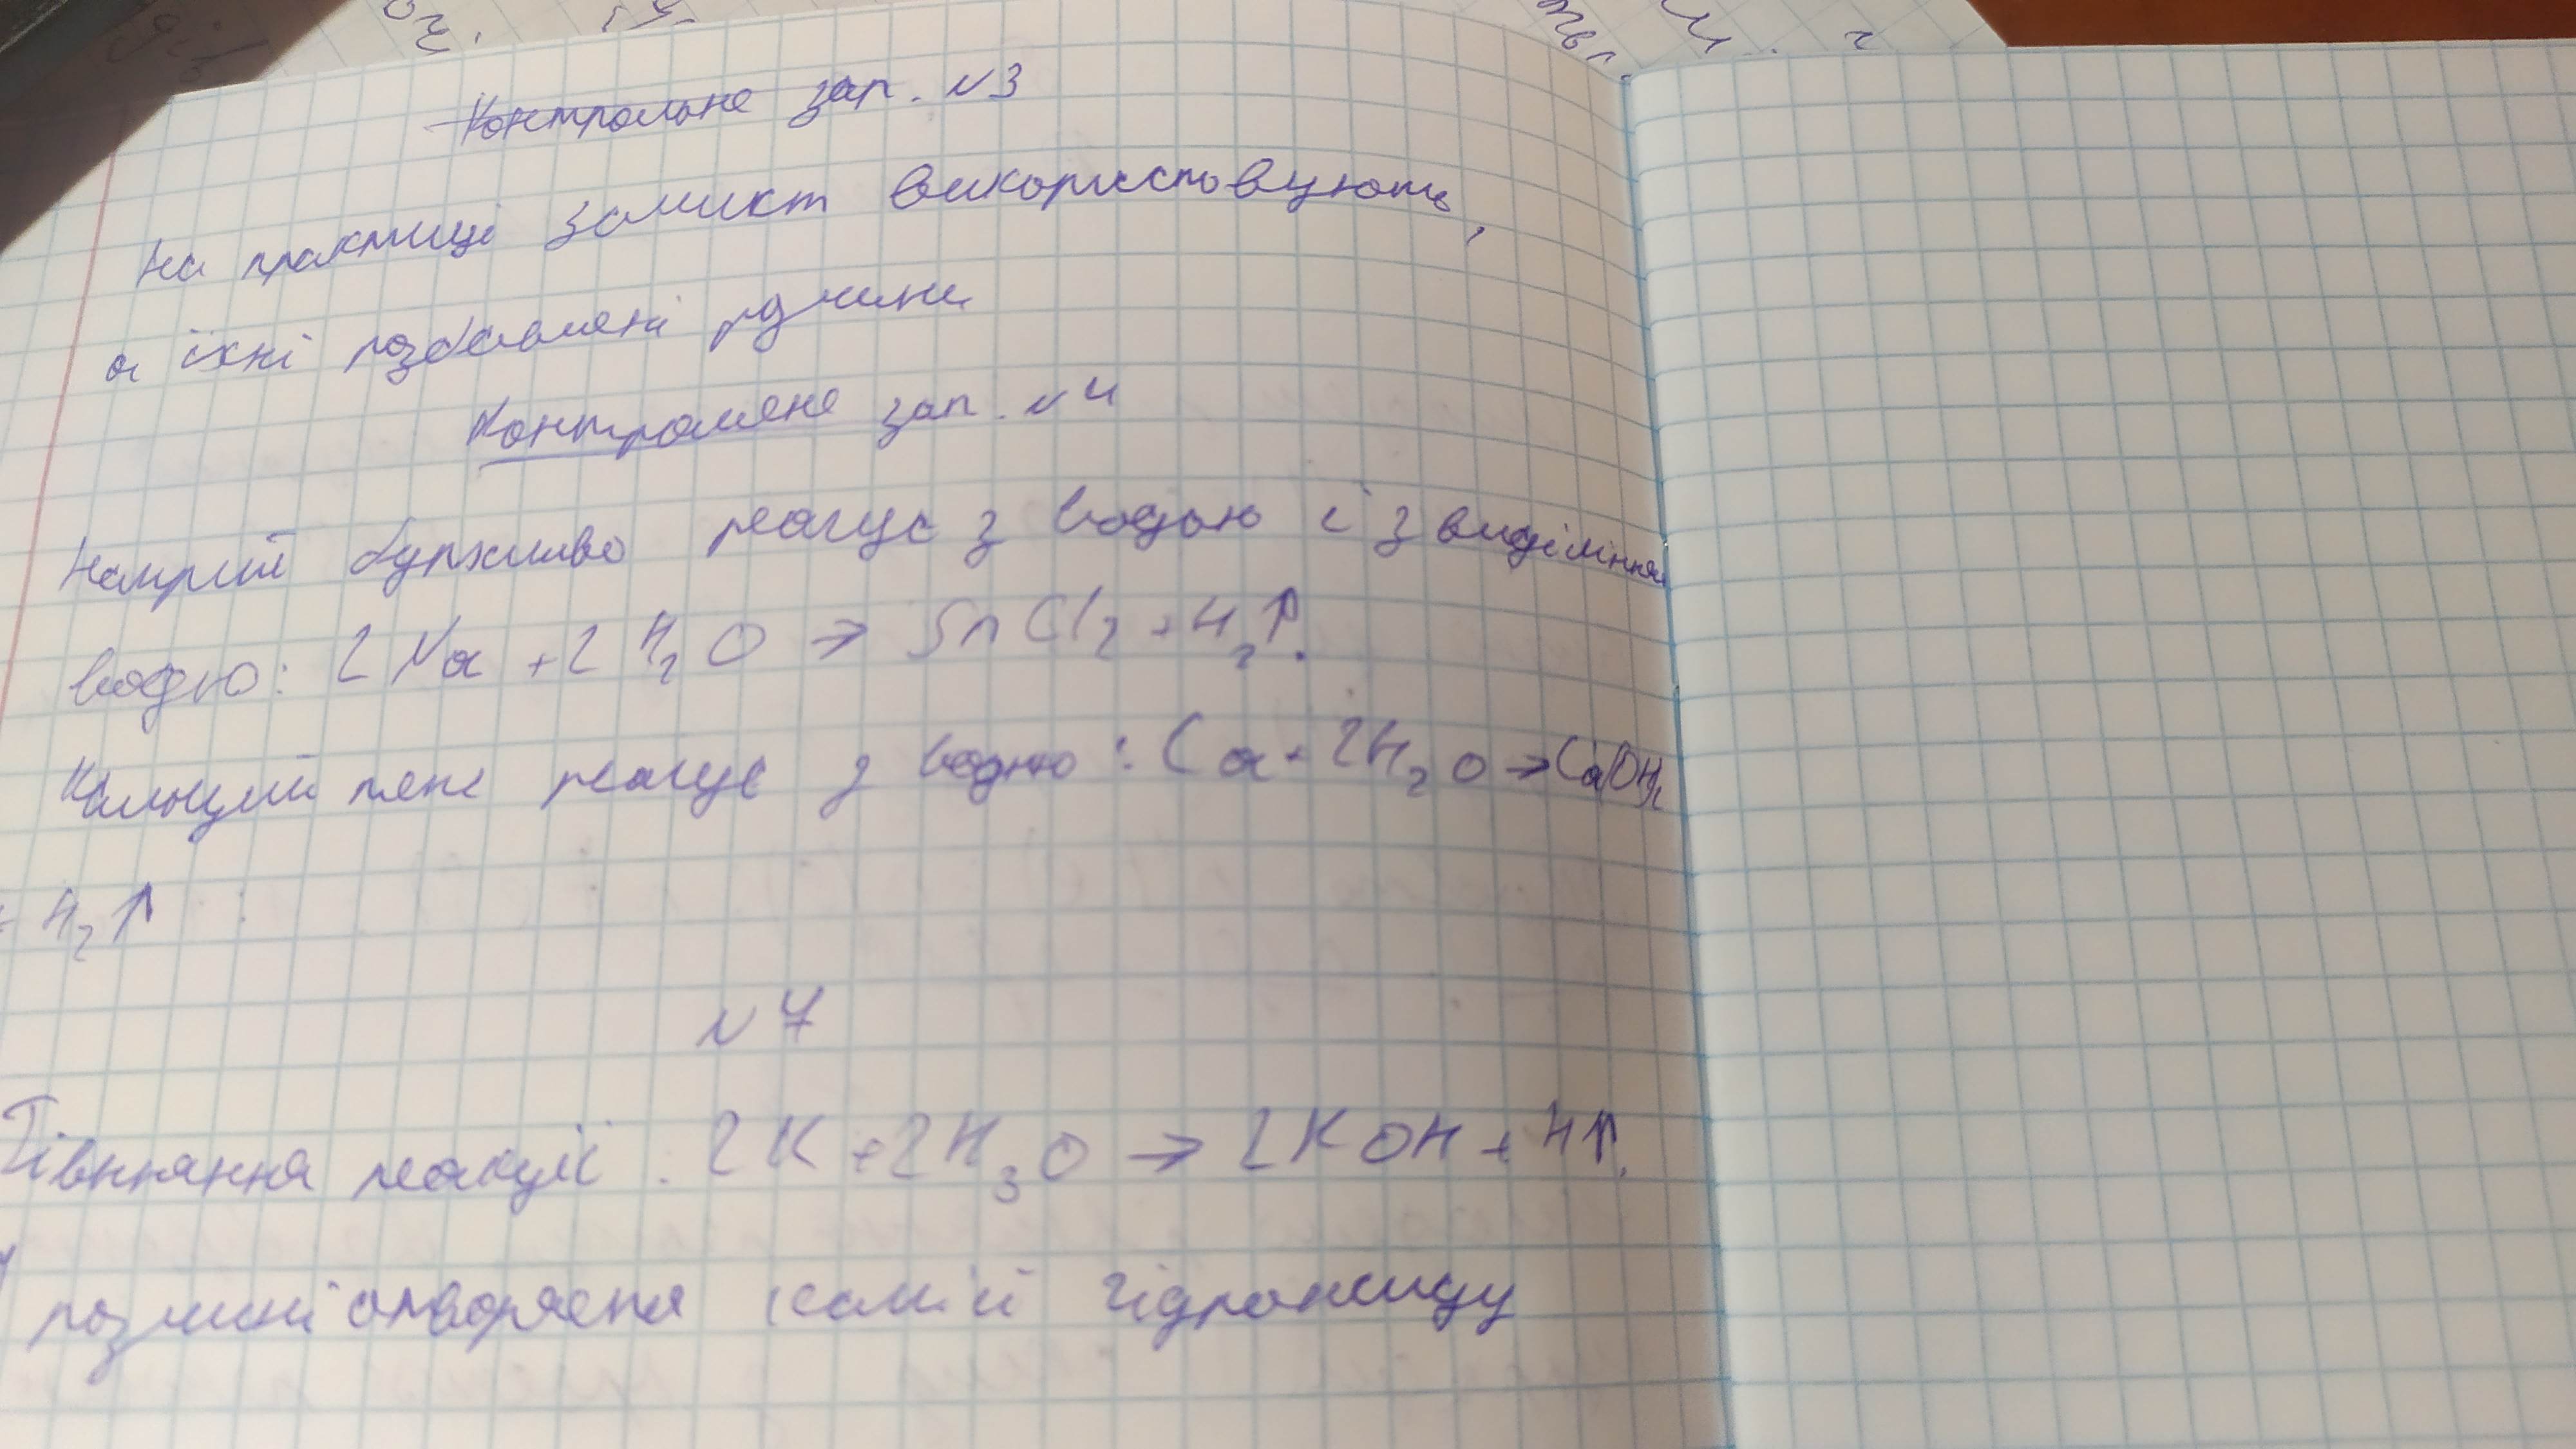 Контрольне зап. №3
На практиці замикт використовують,
а їхні розбавлені рдчини
Контрольне зап. №4
Натрій бурхливо реагує з водою і з видіління
водню: 2Na + 2H₂O → SnCl₂ + H₂↑.
Кальцій теж реагує з водню: Ca + 2H₂O → Ca(OH)₂
+ H₂↑
№7
Рівняння реакції: 2K + 2H₃O → 2KOH + H↑.
У розчині створяєтя калій гідроксиду